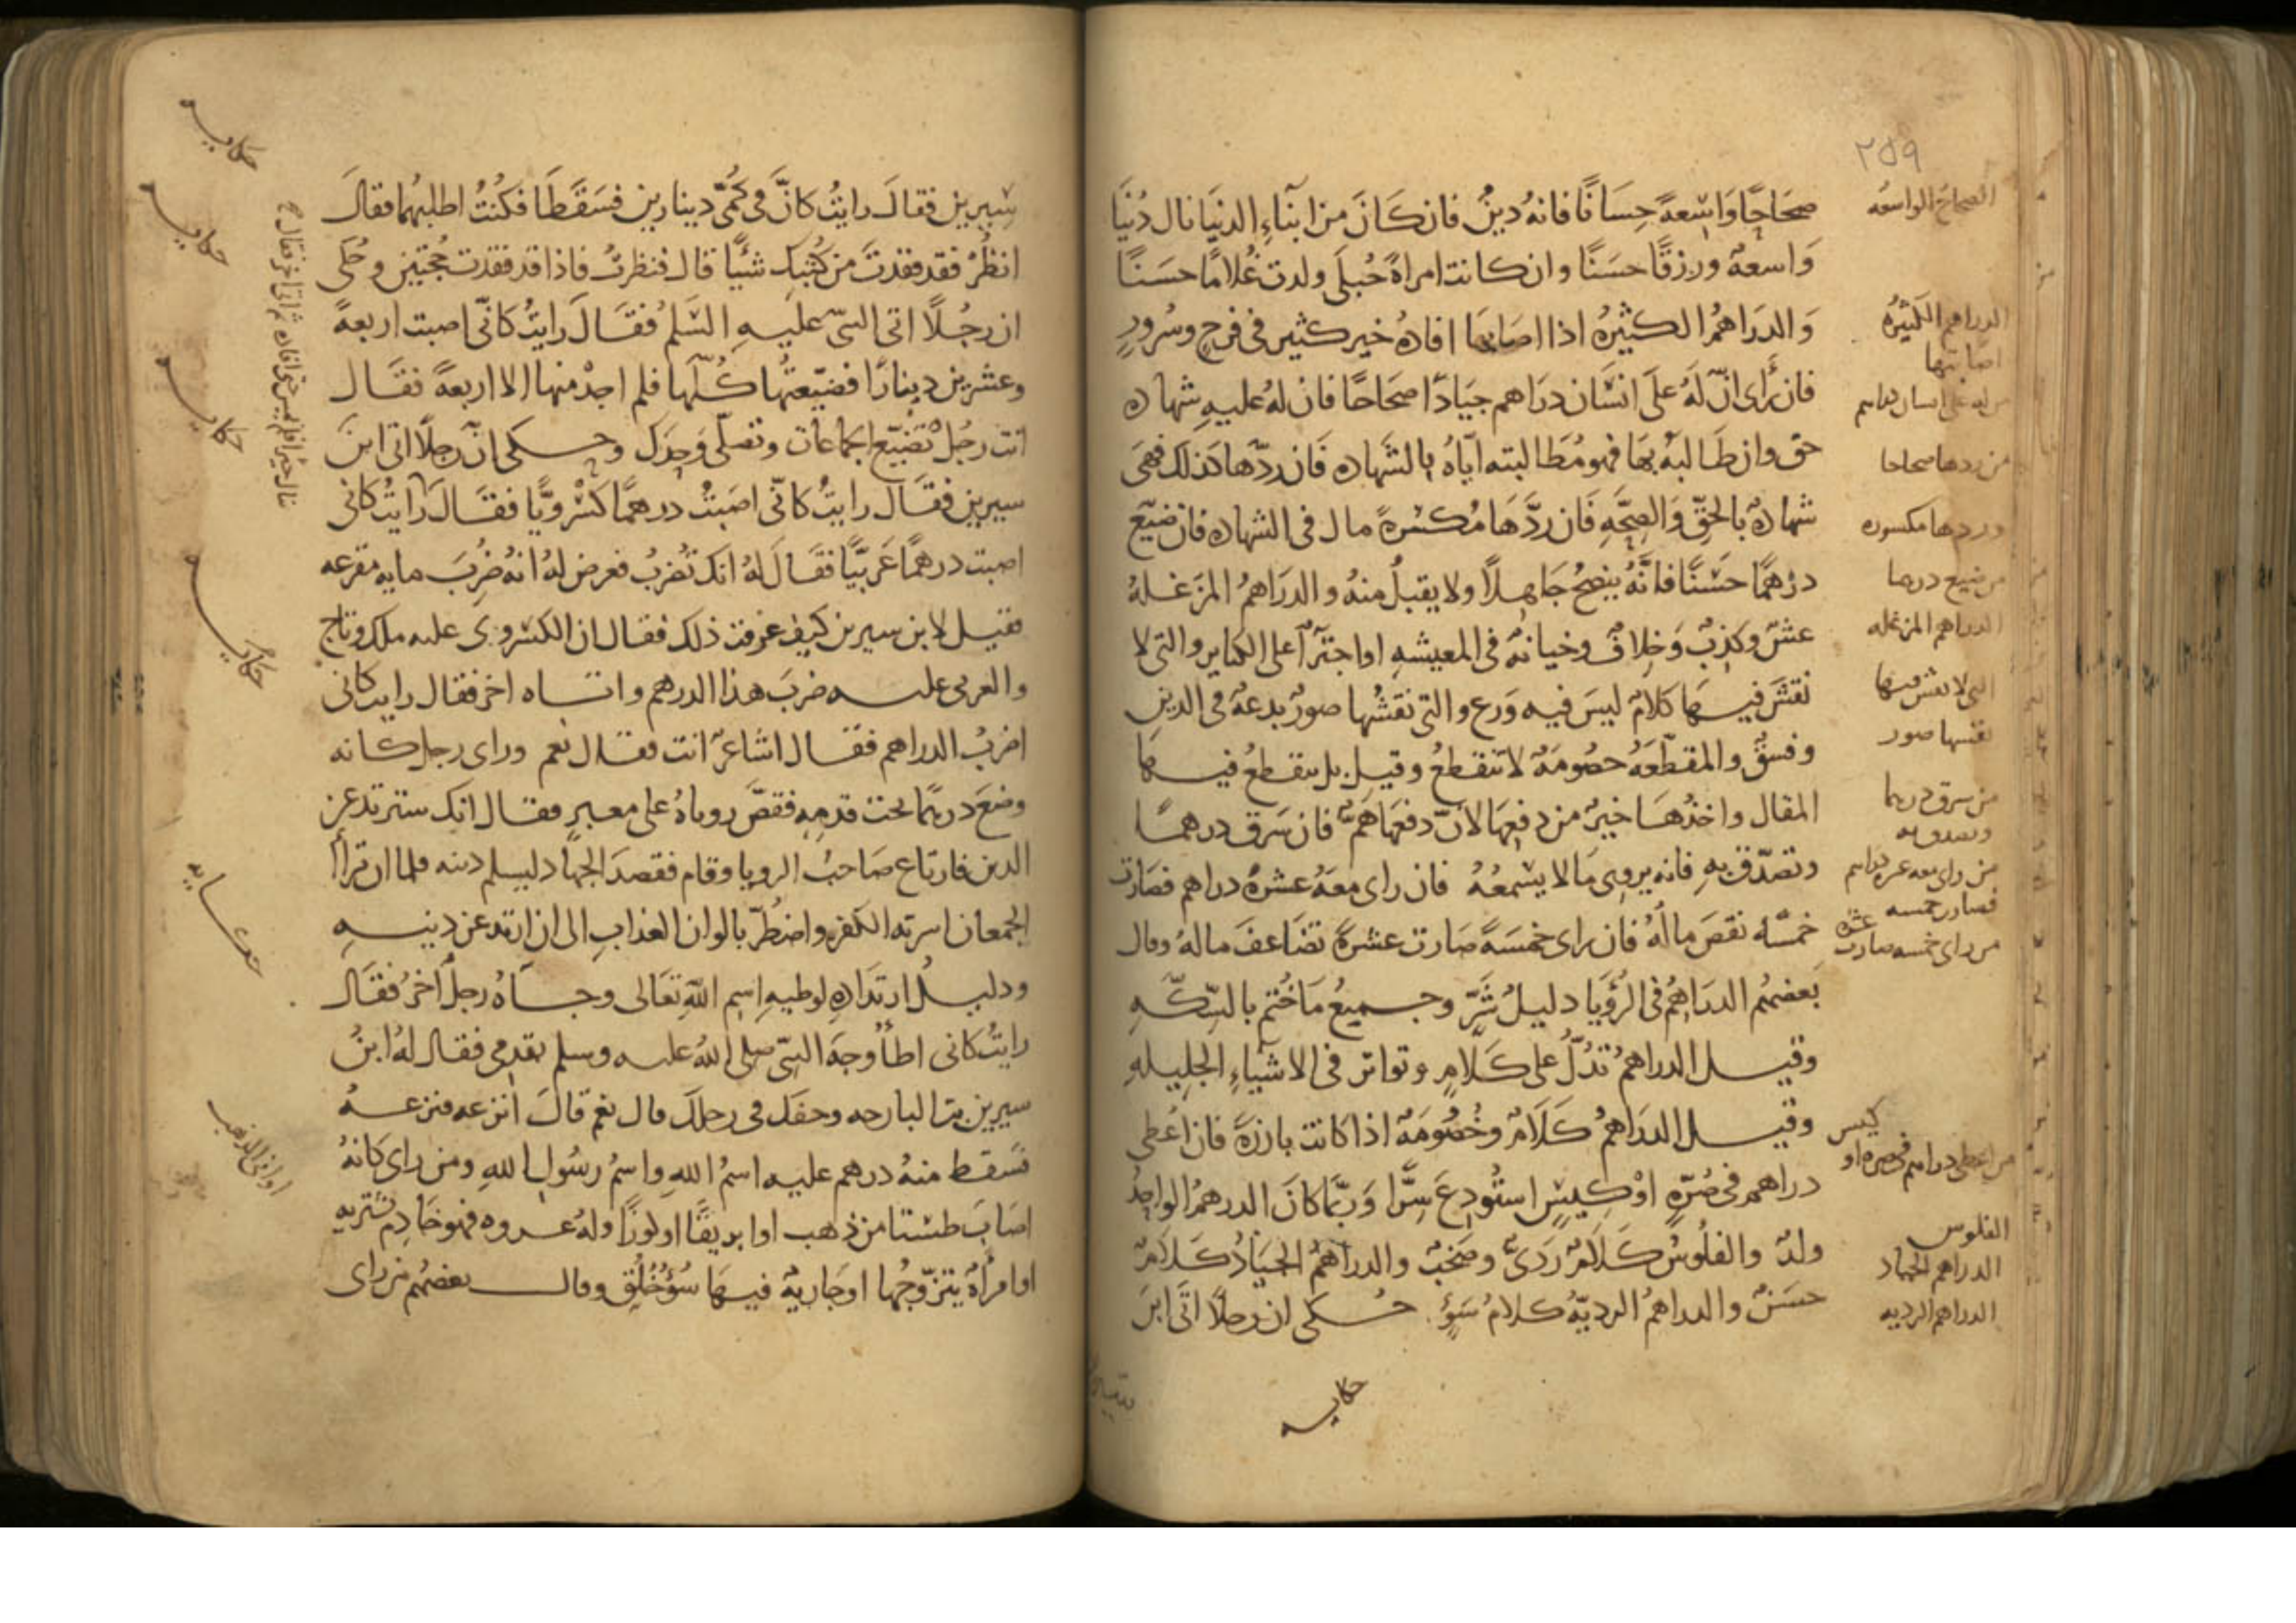 ٢٥٩
صحاحًا واسعةً حِسَانًا فانهُ دينٌ فان كَانَ من ابنَآءِ الدنيَا نال دُنيَا
وَاسعةً ورزقًا حسَنًا وان كانت امراةً حُبلَى ولدت غُلامًا حسَنًا
وَالدرَاهمُ الكثيرُه اذا اصَابَها افادهُ خير كثير فى فرحٍ وسُرورٍ
فان رأى انّ لَهُ علَى انسَان درَاهم جيَادًا صحَاحًا فان لهُ عليهِ شهاده
حق وان طَالبهُ بهَا فهو مُطَالبته ايّاهُ بالشَهاده فَان ردّها كذلك فهىَ
شهادةٌ بالحقّ وَالصِحّهِ فَان ردَّهَا مُكسَرةً مال فى الشهاده فان ضيّع
درْهمًا حَسَنًا فانَّهُ ينصحُ جَاهِلًا ولا يقبلُ منهُ والدرَاهمُ المزَغلهُ
غشٌ وكذبٌ وَخِلافٌ وخيانةٌ فى المعيشهِ او اجترآ على الكباير والتى لا
نقشَ فيهَا كلامٌ ليسَ فيه وَرع والتى نقشُها صورٌ بدعةٌ فى الدين
وفسقٌ والمقطّعَهُ خصُومَةٌ لا تنقطعُ وقيل بل ينقطعُ فيها
المقال واخذُهَا خيرٌ من دفعِهَا لانّ دفعَهَا همٌّ فان سَرق درهمًا
وتصدّق بهِ فانه يروِى مَالا يسْمعُهُ فان راى معَهُ عشرهُ دراهم فصَارت
خمسَه نقصَ مالُهُ فان راى خمسَةً صَارت عشرةً تضَاعفَ مالهُ وقال
بَعضهُم الدرَاهِمُ فى الرُؤيَا دليلُ شَرّ وجميعُ مَا خُتم بالسِكّهِ
وقيل الدراهمُ تدُلُّ على كَلامٍ وتواتر فى الاشيآءِ الجليلهِ
وقيل الدرَاهمُ كَلَامٌ وخُصُومَةٌ اذا كانت بارزةً فان اُعطى
دراهم فى صُرّةٍ اوْ كيسٍ استُودِعَ سِرًّا وَربّمَا كانَ الدرهمُ الواحِدُ
ولدٌ والفلُوسُ كَلَامٌ ردىٌّ وصَخبٌ والدراهمُ الجيَادُ كَلَامٌ
حسَنٌ والدراهمُ الرديّهُ كلامُ سَوٍ حُكى ان رجلًا اتَى ابنَ
الصحاح الواسعه
الدراهم الكثيرُه
اصابتها
من رد‌ها صحاحا
وردها مكسوره
من ضيع درهما
الدراهم المزغله
التى لا نقش فيها
نقشها صور
من سرق درهما
وتصدق به
من راى معه عشره دراهم
فصارت خمسه
من راى خمسه صارت عشرة
من اعطى دراهم فى صره او كيس
الفلوس
الدراهم الجياد
الدراهم الرديه
حكايه
سِيرين فقالَ رايتُ كانَّ فى كُمّى دينارين فسَقَطَا فكُنْتُ اطلبهُما فقالَ
انظُر فقد فقدتَ من كُتبِكَ شَيًا قال فنظرتُ فاذا قد فقدت حُجّتين وحُكى
ان رجُلًا اتى النبىّ عليهِ السَّلمُ فقَالَ رَايتُ كانّى اصبت اربعةً
وعشرين دينارًا فضيّعتُها كُلَّها فلم اجدْ منها الا اربعةً فقَال
انت رجُل تُضيّع الجماعات وتصلّى وَحدَك وحكى انّ رجلًا اتى ابنَ
سيرين فقَال رايتُ كانّى اصَبتُ درهمًا كسْرَويًّا فقَالَ رايتُ كانى
اصبت درهمًا عَربيًّا فقَالَ لهُ انك تُضربُ فعرض لهُ انهُ ضُرِبَ مايه مقرعه
فقيل لابن سيرين كيف عرفت ذلك فقال ان الكسروى عليه ملك وتاج
والعربى عليه ضربَ هذا الدرهم واتاه اخر فقال رايت كانى
اضربُ الدراهم فقال اشاعرٌ انت فقال نعم وراى رجل كانه
وضعَ درهمًا تحت قدمِهِ فقصَّ روياهُ على معبرٍ فقال انك سترتد عن
الدين فارتاع صَاحبُ الرويا وقام فقصدَ الجهاد ليسلم دينه فلما ان تراأ
الجمعان اسرته الكفره واضطُرّ بالوان العذابِ الى ان ارتد عن دينهِ
ودليل ارتدادِهِ لوطيهِ اسم اللهِ تعَالى وجآهُ رجلٌ آخرُ فقَال
رايتُ كانى اطأ وجهَ النبىّ صلى اللهُ عليه وسلم بقدمى فقال لهُ ابنُ
سيرين بتّ البارحه وخفك فى رجلك قال نعم قالَ انزعه فنزعهُ
فسَقط منهُ درهم عليه اسمُ اللهِ واسمُ رسُولِ اللهِ ومن راى كانهُ
اصَابَ طستا من ذهب او ابريقًا او كوزًا ولهُ عروه فهو خَادِم يشتريهِ
او امرأةً يتزوّجُها او جَاريةً فيهَا سُوءُ خُلُقٍ وقال بعضهُم من راى
حكايه
حكايه
حكايه
حكايه
حكايه
اوانى الذهب